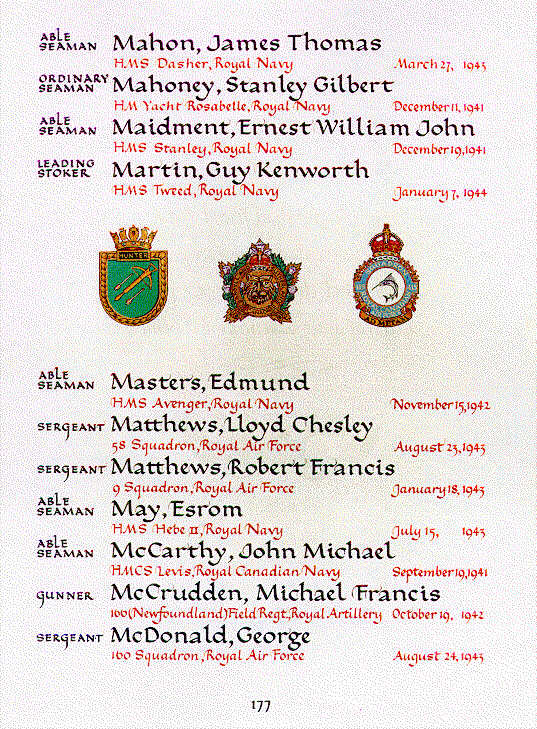 ABLE SEAMAN Mahon, James Thomas
HMS Dasher, Royal Navy March 27, 1943
ORDINARY SEAMAN Mahoney, Stanley Gilbert
HM Yacht Rosabelle, Royal Navy December 11, 1941
ABLE SEAMAN Maidment, Ernest William John
HMS Stanley, Royal Navy December 19, 1941
LEADING STOKER Martin, Guy Kenworth
HMS Tweed, Royal Navy January 7, 1944
HUNTER
ABLE SEAMAN Masters, Edmund
HMS Avenger, Royal Navy November 15, 1942
SERGEANT Matthews, Lloyd Chesley
58 Squadron, Royal Air Force August 23, 1943
SERGEANT Matthews, Robert Francis
9 Squadron, Royal Air Force January 18, 1943
ABLE SEAMAN May, Esrom
HMS Hebe II, Royal Navy July 15, 1943
ABLE SEAMAN McCarthy, John Michael
HMCS Levis, Royal Canadian Navy September 19, 1941
GUNNER McCrudden, Michael Francis
166 (Newfoundland) Field Regt., Royal Artillery October 19, 1942
SERGEANT McDonald, George
160 Squadron, Royal Air Force August 24, 1943
177